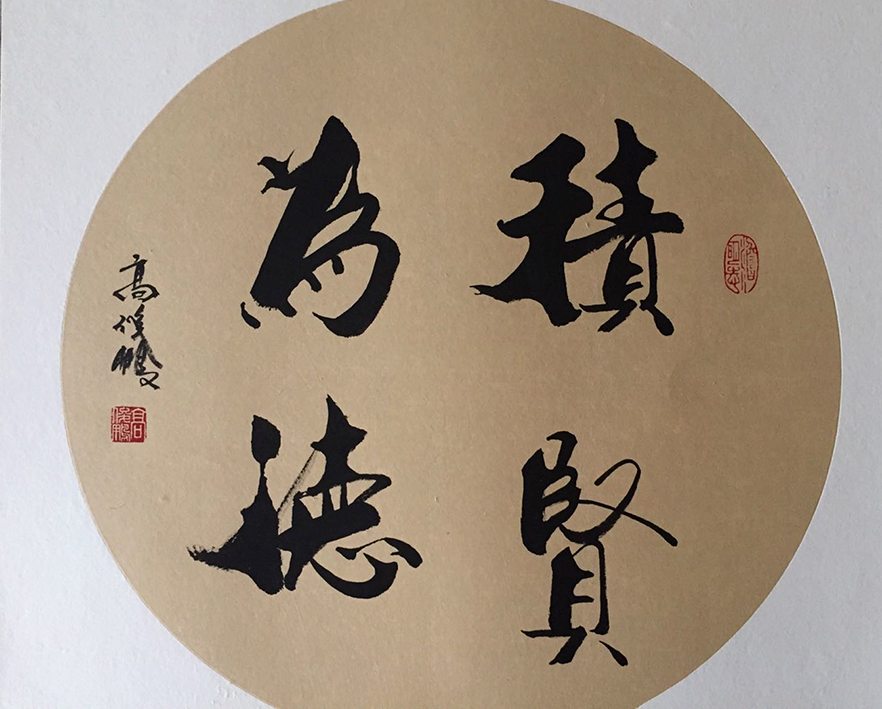 積賢
為德
高俊鵬